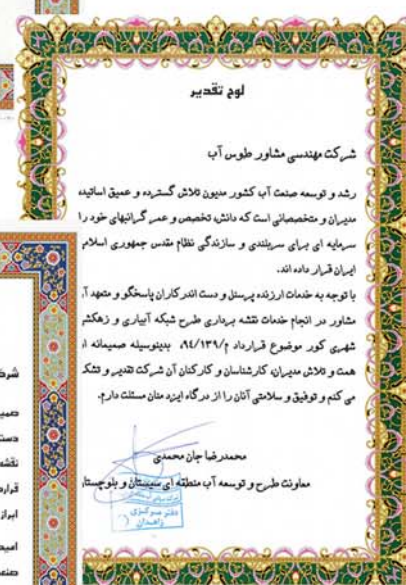 لوح تقدیر
شرکت مهندسی مشاور طوس آب
رشد و توسعه صنعت آب کشور مدیون تلاش گسترده و عمیق اساتید،
مدیران و متخصصانی است که دانش، تخصص و عمر گرانبهای خود را
سرمایه ای برای سربلندی و سازندگی نظام مقدس جمهوری اسلامی
ایران قرار داده اند.
با توجه به خدمات ارزنده پرسنل و دست اندرکاران پاسخگو و متعهد آن
مشاور در انجام خدمات نقشه برداری طرح شبکه آبیاری و زهکشی
شهری کور موضوع قرارداد م/۹۴/۱۳۹، بدینوسیله صمیمانه از
همت و تلاش مدیران، کارشناسان و کارکنان آن شرکت تقدیر و تشکر
می کنم و توفیق و سلامتی آنان را از درگاه ایزد منان مسئلت دارم.
محمدرضا جان محمدی
معاونت طرح و توسعه آب منطقه ای سیستان و بلوچستان
دفتر مرکزی
زاهدان
شرک
صمیـ
دست
نقشه
قرارد
ابراز
امید
صنعـ